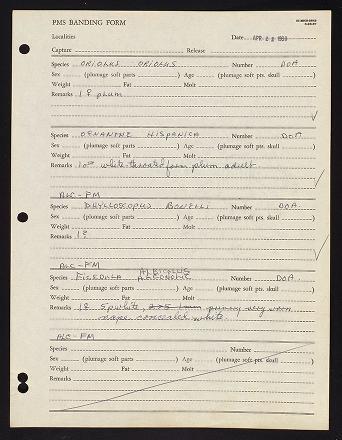 PMS BANDING FORM
Localities Date APR 28 1969
Capture Release
Species ORIOLUS ORIOLUS Number DOA
Sex (plumage soft parts) Age (plumage soft pts. skull)
Weight Fat Molt
Remarks 1♀ plum
Species OENANTHE HISPANICA Number DOA
Sex (plumage soft parts) Age (plumage soft pts. skull)
Weight Fat Molt
Remarks white throated form plum adult
ALC-FM
Species PHYLLOSCOPUS BONELLI Number DOA
Sex (plumage soft parts) Age (plumage soft pts. skull)
Weight Fat Molt
Remarks 1♀
ALC-FM
ALBICOLLIS
Species FICEDULA Number DOA
Sex (plumage soft parts) Age (plumage soft pts. skull)
Weight Fat Molt
Remarks 1♀ primary very worn
nape concealed white.
ALC-FM
Species Number
Sex (plumage soft parts) Age (plumage soft pts. skull)
Weight Fat Molt
Remarks